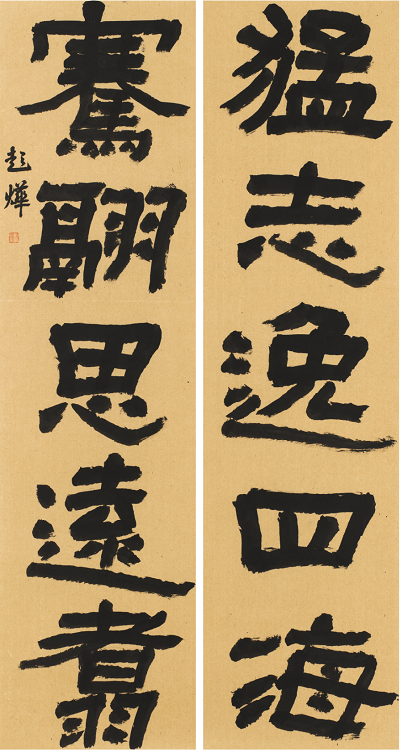 猛志逸四海
騫翮思遠翥
燁